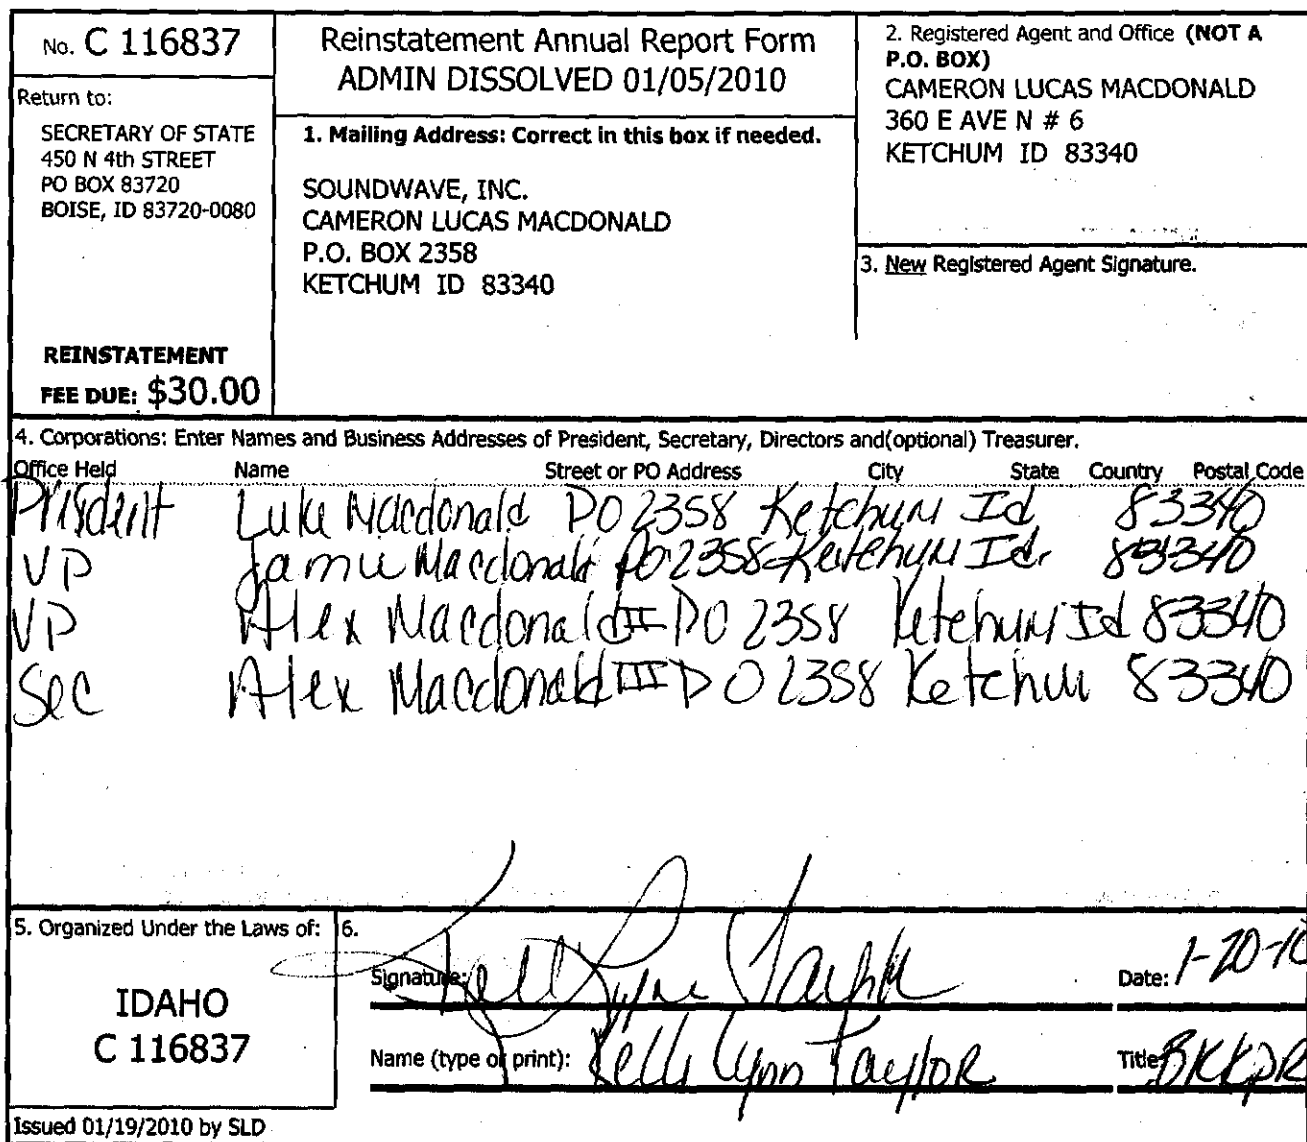 No. C 116837
Return to:
SECRETARY OF STATE
450 N 4th STREET
PO BOX 83720
BOISE, ID 83720-0080
REINSTATEMENT
FEE DUE: $30.00
Reinstatement Annual Report Form
ADMIN DISSOLVED 01/05/2010
1. Mailing Address: Correct in this box if needed.
SOUNDWAVE, INC.
CAMERON LUCAS MACDONALD
P.O. BOX 2358
KETCHUM ID 83340
2. Registered Agent and Office (NOT A
P.O. BOX)
CAMERON LUCAS MACDONALD
360 E AVE N # 6
KETCHUM ID 83340
3. New Registered Agent Signature.
4. Corporations: Enter Names and Business Addresses of President, Secretary, Directors and(optional) Treasurer.
Office Held Name Street or PO Address City State Country Postal Code
President Luke Macdonald PO 2358 Ketchum Id 83340
VP Jamie Macdonald Po 2358 Ketchum Id. 83340
VP Alex Macdonald II PO 2358 Ketchum Id 83340
Sec Alex Macdonald III PO 2358 Ketchum 83340
5. Organized Under the Laws of:
IDAHO
C 116837
6.
Signature: Kelly Lynn Taylor Date: 1-20-10
Name (type or print): Kelly Lynn Taylor Title: BKKPR
Issued 01/19/2010 by SLD